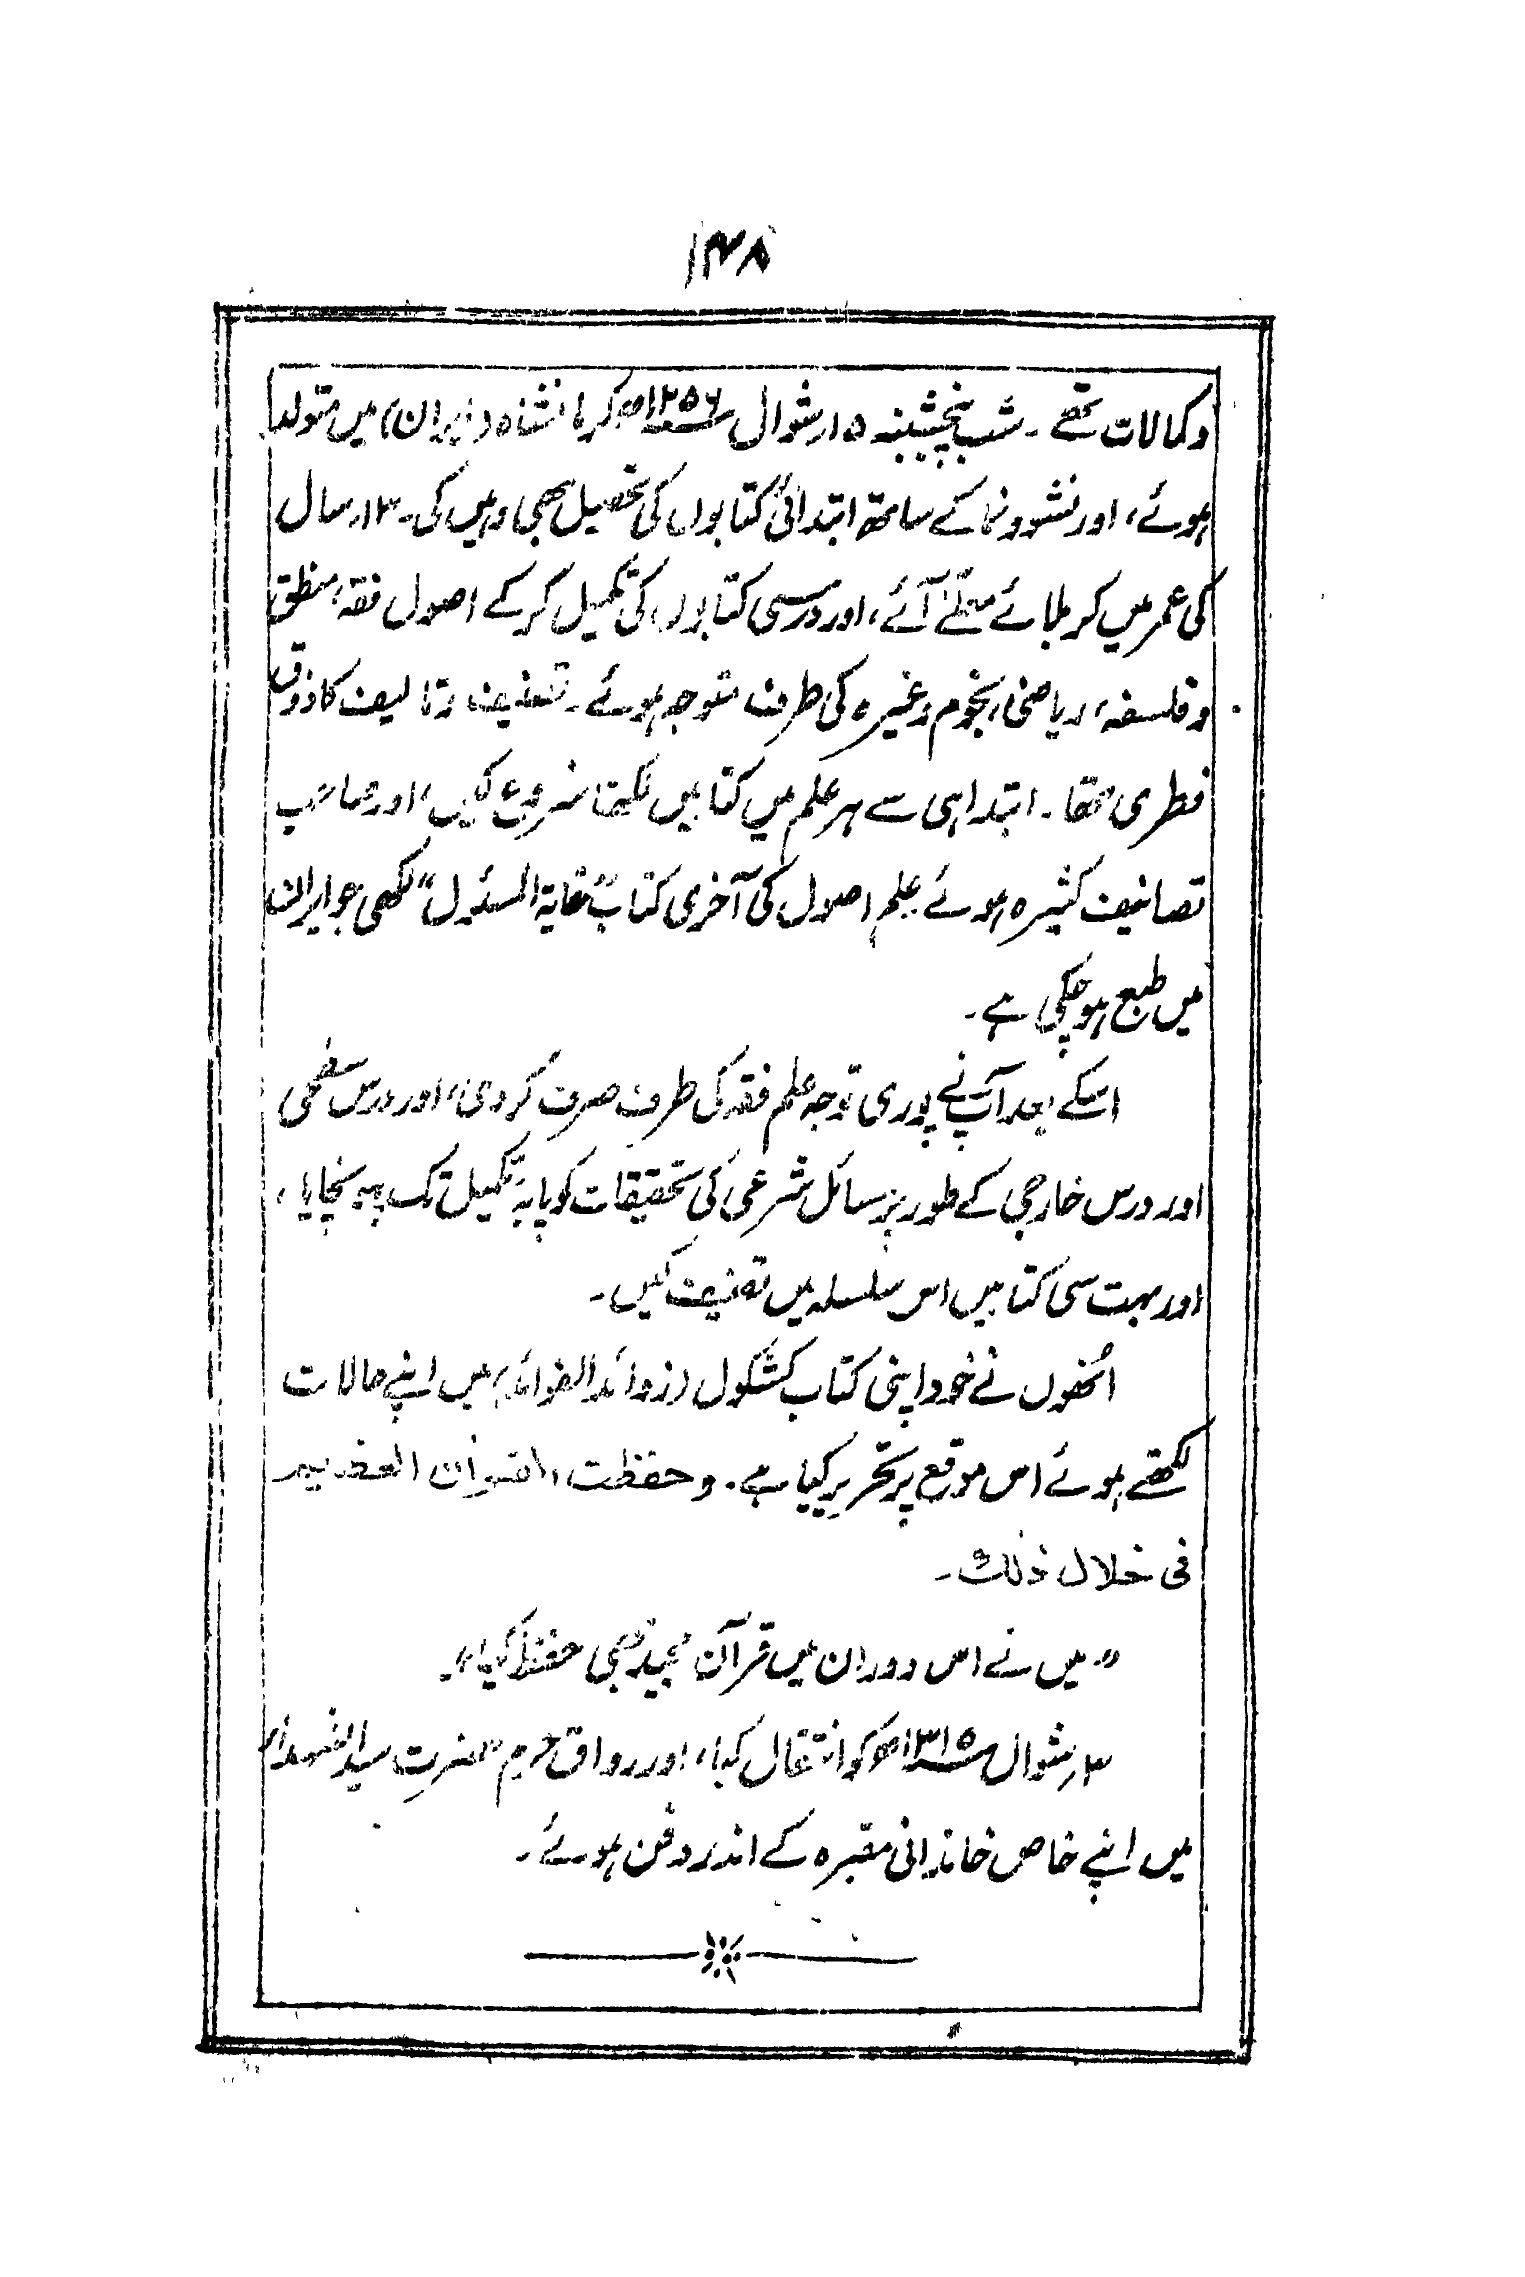 ۱۴۸
وکمالات تھے۔ شب پنجشنبہ ۱۵ر شوال ۱۲۵۶ھ کرمانشاہ (ایران) میں متولد
ہوئے، اور نشوونما کے ساتھ ابتدائی کتابوں کی تحصیل بھی وہیں کی۔ ۱۳ر سال
کی عمر میں کربلائے معلّٰے آئے، اور درسی کتابوں کی تکمیل کرکے اصول فقہ، منطق
وفلسفہ، ریاضی، نجوم وغیرہ کی طرف متوجہ ہوئے۔ تصنیف وتالیف کا ذوق
فطری تھا۔ ابتدا ہی سے ہر علم میں کتابیں لکھنا شروع کیں، اور صاحب
تصانیف کثیرہ ہوئے علم اصول کی آخری کتاب "غایۃ المسئول" لکھی جو ایران
میں طبع ہوچکی ہے۔
اسکے بعد آپ نے پوری توجہ علم فقہ کی طرف صرف کردی، اور درس سطحی
اور درس خارجی کے طور پر مسائل شرعی کی تحقیقات کو پایۂ تکمیل تک پہونچایا،
اور بہت سی کتابیں اس سلسلہ میں تصنیف کیں۔
انھوں نے خود اپنی کتاب کشکول (زوائد الفوائد) میں اپنے حالات
لکھتے ہوئے اس موقع پر تحریر کیا ہے۔ وحفظت القرآن العظیم
فی خلال ذٰلک۔
"میں نے اس دوران میں قرآن مجید بھی حفظ کیا"۔
۳ر شوال ۱۳۱۵ھ کو انتقال کیا، اور رواق حرم حضرت سید الشہداء
میں اپنے خاص خاندانی مقبرہ کے اندر دفن ہوئے۔